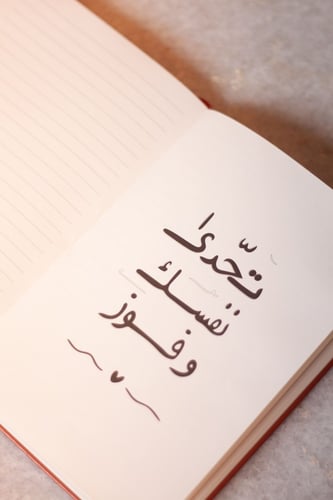 تحّدى
نفسك
وفوز